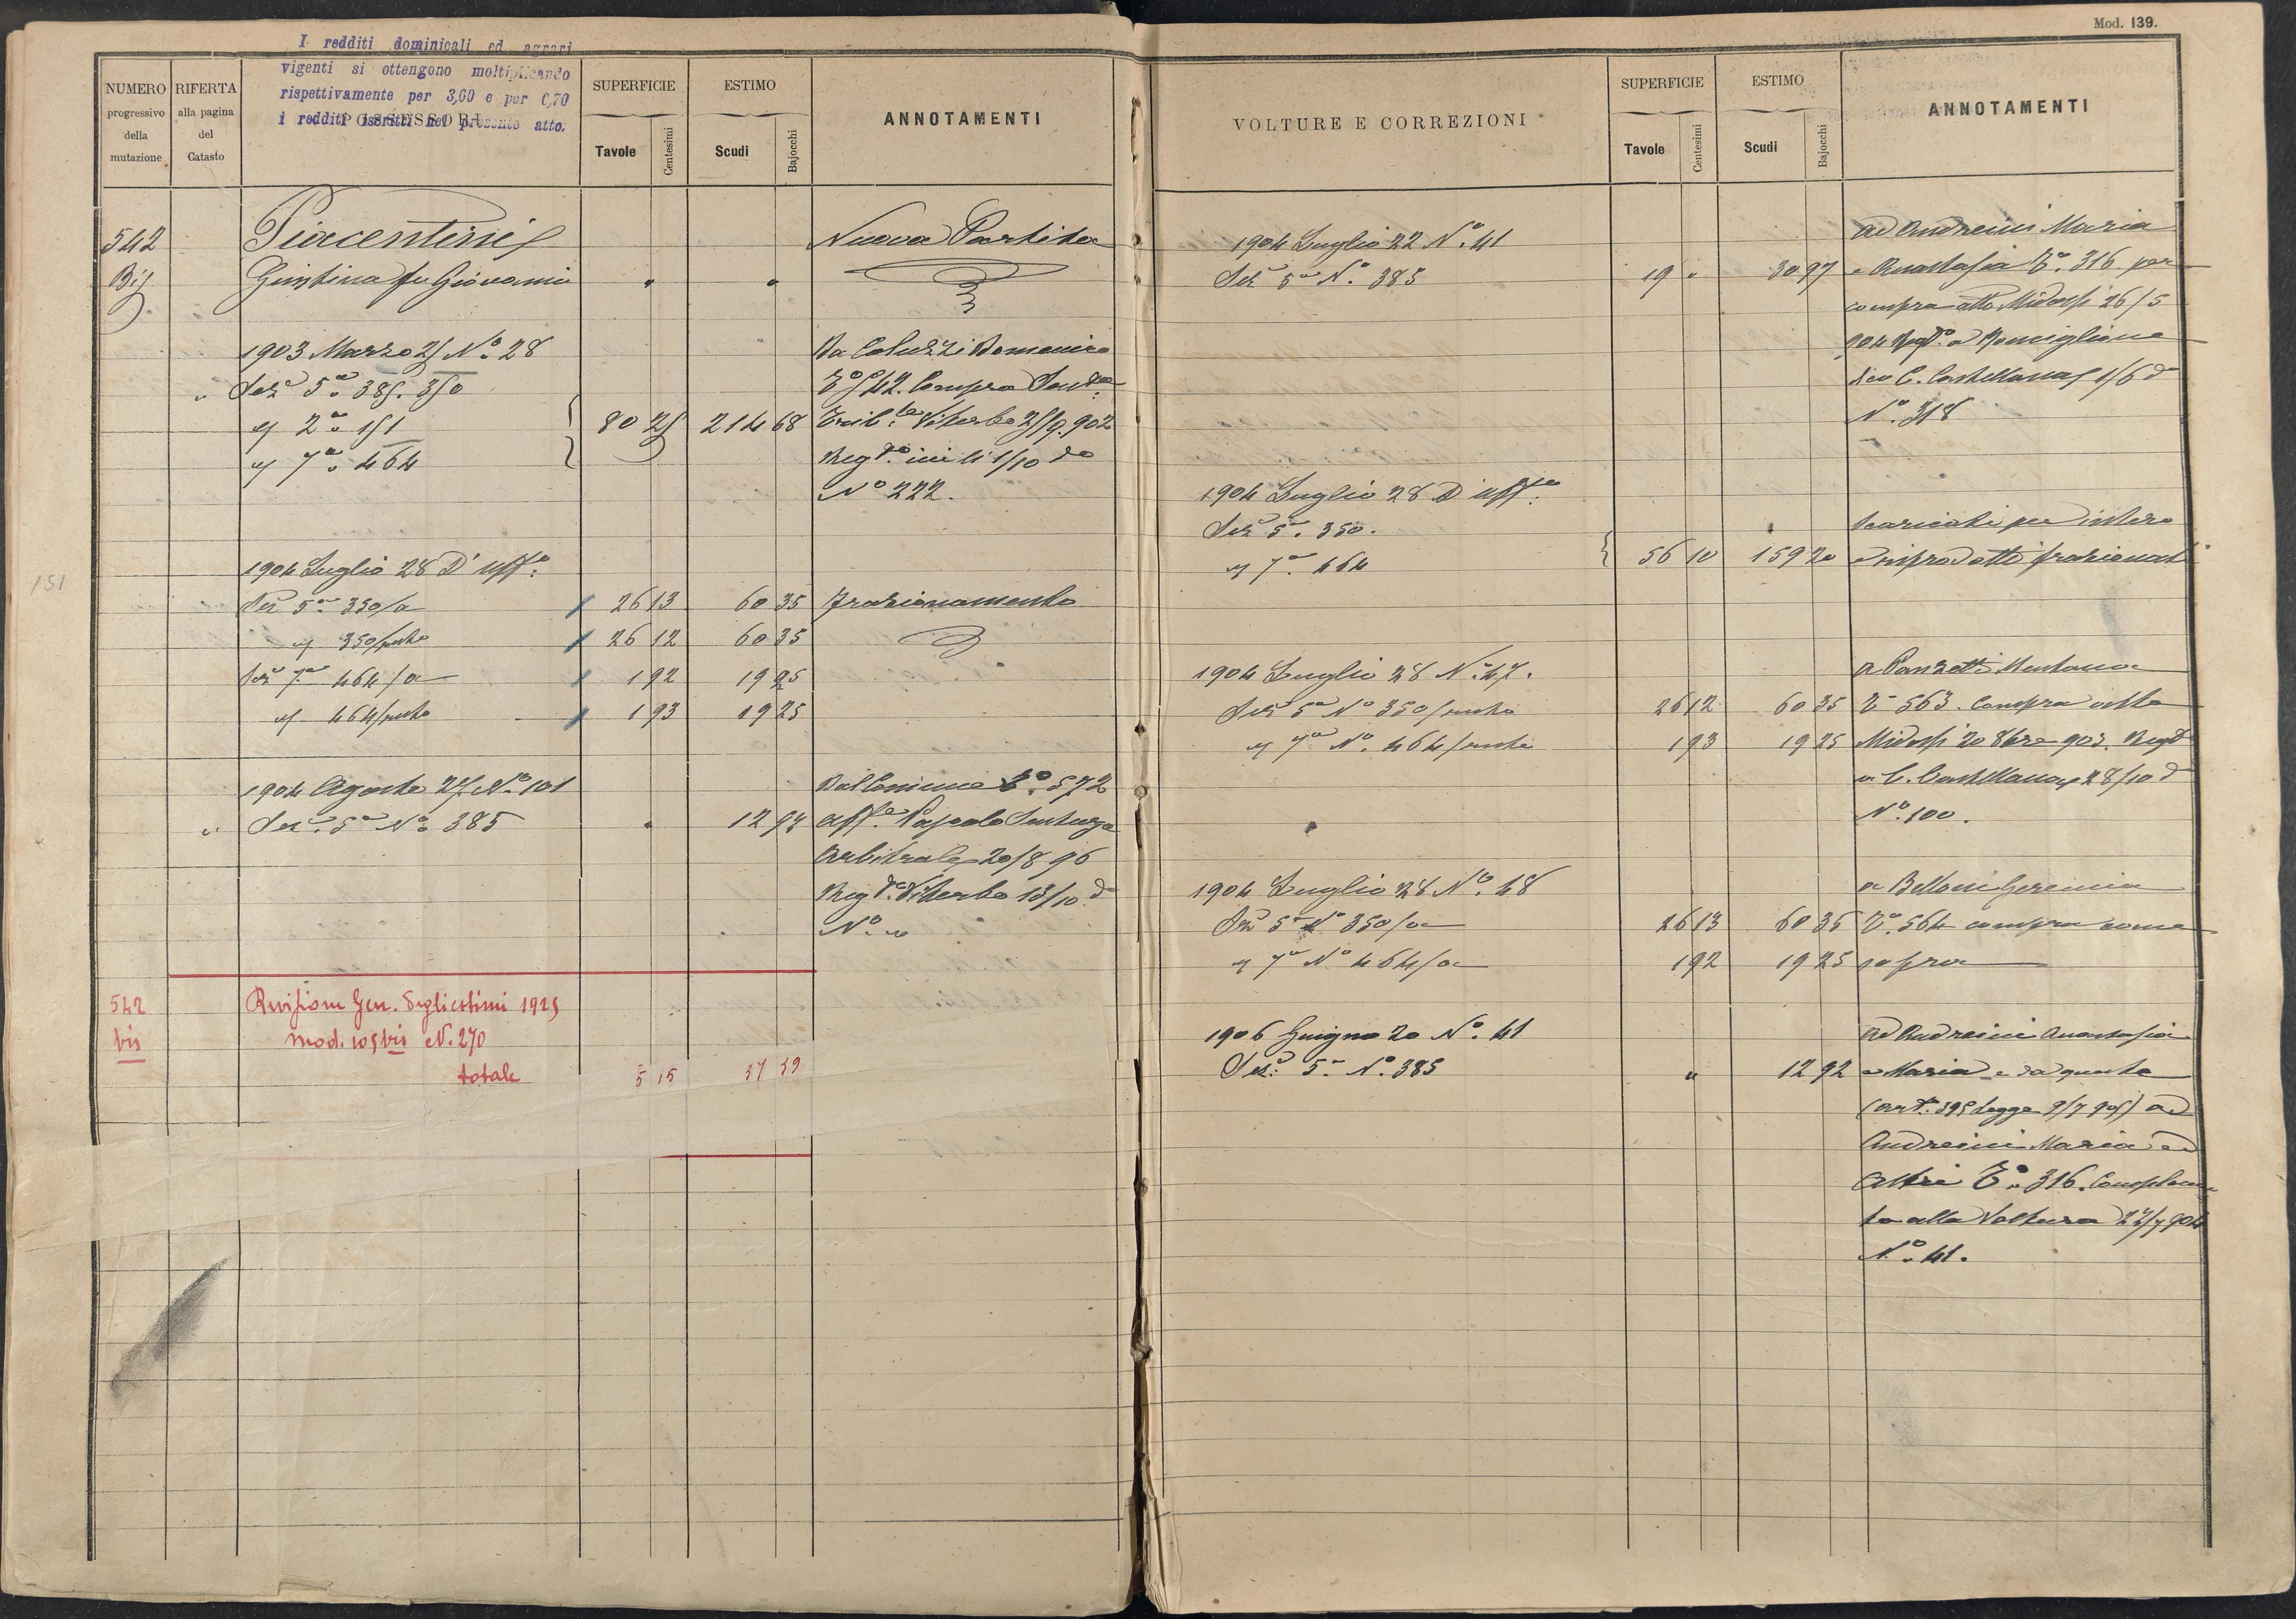 Mod. 139.
I redditi dominicali ed agrari
vigenti si ottengono moltiplicando
rispettivamente per 3,60 e per 0,70
i redditi iscritti nel presente atto.
NUMERO progressivo della mutazione
RIFERTA alla pagina del Catasto
POSSESSORI
SUPERFICIE
Tavole Centesimi
ESTIMO
Scudi Bajocchi
ANNOTAMENTI
542 Piacentini Nuova Partita
Bis Giustina fu Giovanni " "
1903 Marzo 25 No. 28 Da Coluzzi Domenico
" Sez. 5a 385. 350 To 542. Compra Senta
" 2a 151 80 25 214 68 Trib.le Viterbo 25/9.902
" 7a 464 Reg.to ivi li 1/10 do
No 222.
1904 Luglio 28 D'uff.o
Sez 5a 350/a 26 13 60 35 Frazionamento
" 350/resto 26 12 60 35
Sez 7a 464/a 1 92 19 25
" 464/resto 1 93 19 25
1904 Agosto 27 No 101 Dal Comune To. 572
" Sez. 5a No 385 " 12 92 Aff.to Pascolo Sentenza
Arbitrale 20/8 96
Reg.to Viterbo 13/10 do
No "
542 Revisione Gen. Degli estimi 1925
bis mod. 105 bis N. 270
totale 5 15 37 59
151
VOLTURE E CORREZIONI
SUPERFICIE
Tavole Centesimi
ESTIMO
Scudi Bajocchi
ANNOTAMENTI
ad Andreini Maria
1904 Luglio 22 No. 41
Sez 5a No. 385 19 " 30 97 e Anastasia To. 316 per
compra atto Midossi 26/5
904 Reg.to a Ronciglione
C. Castellana 1/6 do
No. 318
1904 Luglio 28 D'uff.o
Sez 5a. 350. Scaricati per intero
" 7a. 464 56 10 159 20 e riprodotti frazionati
1904 Luglio 28 No. 47. a Panzetti Mentana
Sez 5a No 350/resto 26 12 60 35 To 563. Compra atto
" 7a No. 464/resto 1 93 19 25 Midossi 20 8bre 903. Regto
a C. Castellana 28/10 do
No. 100.
1904 Luglio 28 No. 48 a Belloni Geremia
Sez 5a No 350/a 26 13 60 35 To. 564 compra come
" 7a No 464/a 1 92 19 25 sopra
1906 Giugno 20 No. 41 ad Andreini Anastasia
Sez. 5a No. 385 " 12 92 e Maria e da queste
(art. 395 Legge 9/7 905) ad
Andreini Maria ed
Altri To. 316. Complemen
to alla Voltura 22/7 904
No. 41.